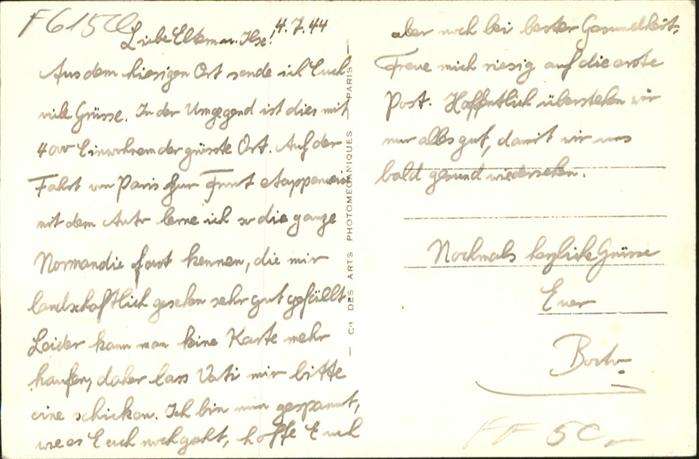 F615
4.7.44
Liebe Eltern u. Ilse!
Aus dem hiesigen Ort sende ich Euch
viele Grüsse. In der Umgegend ist dies mit
4000 Einwohnern der grösste Ort. Auf der
Fahrt von Paris zur Front
mit dem Auto lerne ich so die ganze
Normandie fast kennen, die mir
landschaftlich gesehen sehr gut gefällt.
Leider kann man keine Karte mehr
kaufen, daher lass Vati mir bitte
eine schicken. Ich bin nun gespannt,
wie es Euch noch geht, hoffe Euch
aber noch bei bester Gesundheit.
Freue mich riesig auf die erste
Post. Hoffentlich überstehen wir
nur alles gut, damit wir uns
bald gesund wiedersehen.
Nochmals herzliche Grüsse
Euer
FF 50
Cie DES ARTS PHOTOMECANIQUES — PARIS —